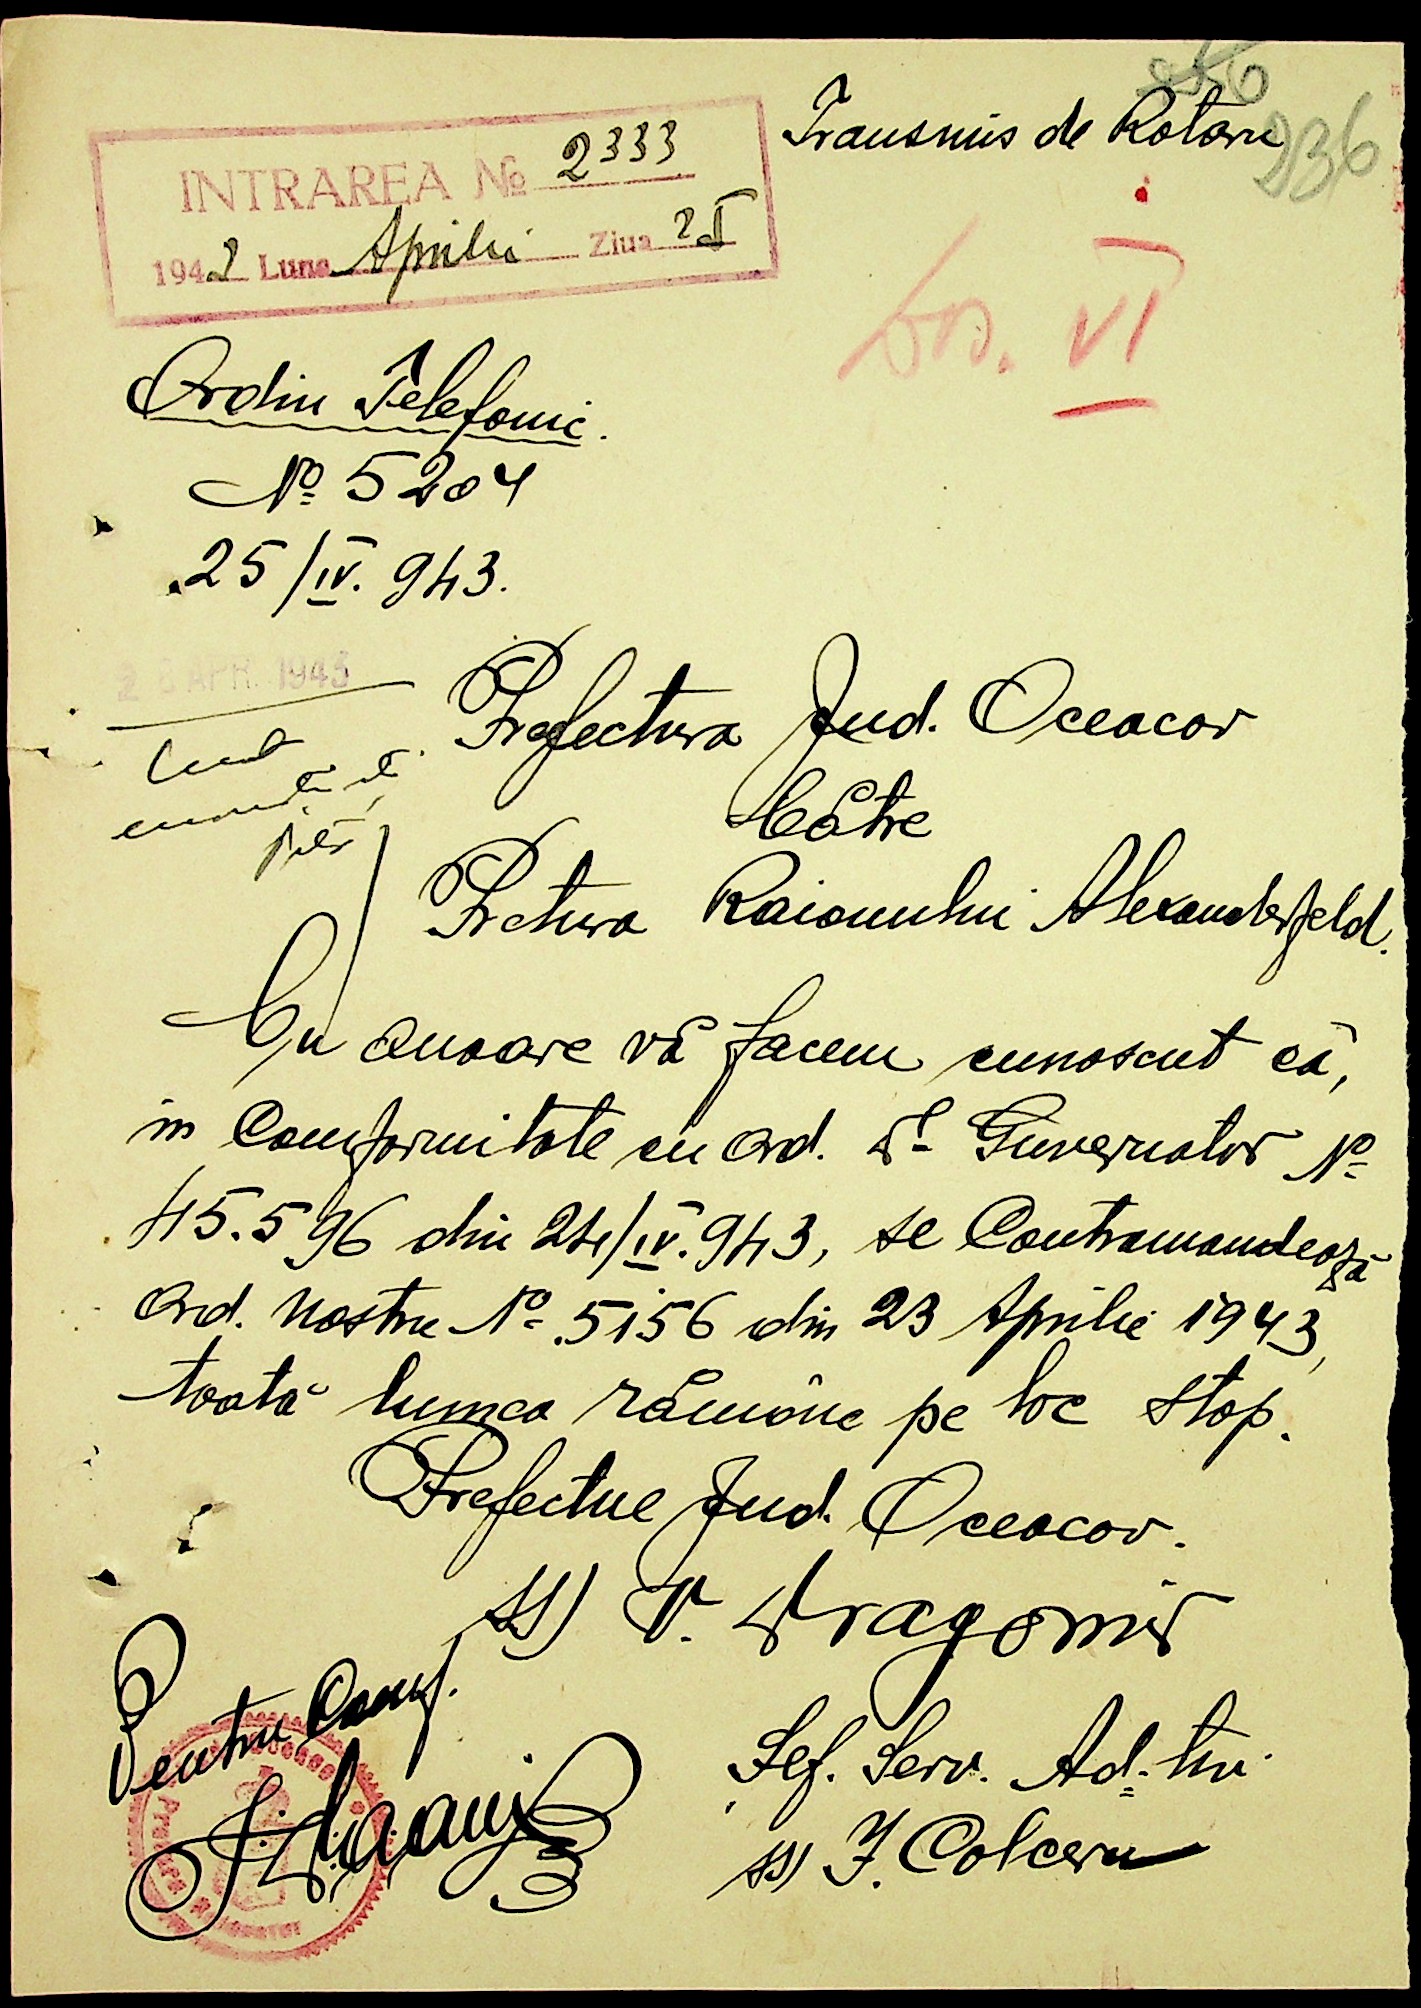 236
Transmis de Rotaru
INTRAREA No 2333
1942 Luna Aprilie Ziua 25
Dos. VI
Ordin Telefonic.
No 5204
25/IV. 943.
26 APR. 1943
Prefectura Jud. Oceacov
Către
Pretura Raionului Alexanderfeld.
Cu onoare vă facem cunoscut că,
in Comformitate cu ord. D-l Guvernator No
45.596 din 24/IV. 943, se Contramandează
Ord. nostru No 5156 din 23 Aprilie 1943,
toată lumea rămâne pe loc stop.
Prefectul Jud. Oceacov.
ss) V. Dragomir
Pentru Conf.
Șef. Serv. Ad-tiv.
ss) I. Colceru